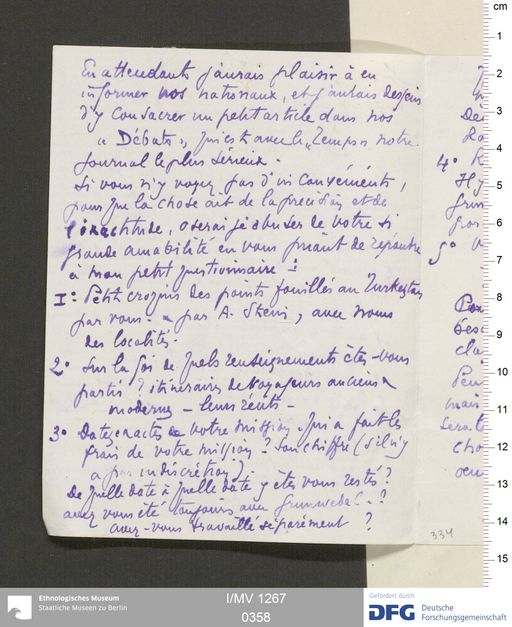 En attendant j'aurais plaisir à en
informer nos nationaux, et j'aurais dessein
d'y consacrer un petit article dans nos
« Débats », qui est avec le « Temps » notre
journal le plus sérieux.
Si vous n'y voyez pas d'inconvénients,
pour que la chose ait de la précision et de
l'exactitude, oserai je abuser de votre si
grande amabilité en vous priant de répondre
à mon petit questionnaire :
I° Petit croquis des points fouillés au Turkestan
par vous. - par A. Stein, avec noms
des localités.
2° Sur la foi de quels renseignements êtes-vous
partis ? itinéraires de voyageurs anciens
modernes - leurs récits -
3° Dates exactes de votre mission. Qui a fait les
frais de votre mission ? Son chiffre (s'il n'y
a pas indiscrétion).
De quelle date à quelle date y êtes vous restés ?
avez vous été toujours avec Grunwedel. ?
avez-vous travaillé séparément ?
4°
5°
334
cm
1
2
3
4
5
6
7
8
9
10
11
12
13
14
15
Ethnologisches Museum
Staatliche Museen zu Berlin
I/MV 1267
0358
Gefördert durch
DFG Deutsche
Forschungsgemeinschaft